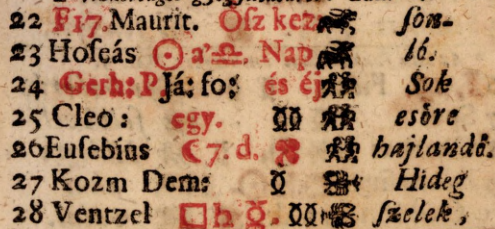 22 F17. Maurit. Ősz kez. ſon-
23 Hoſeás ☉ a' ♎. Nap ló.
24 Gerh: P Já: fo: és éj Sok
25 Cleo: egy. esőre
26 Euſebius ☾ 7. d. hajlandó.
27 Kozm Dem: Hideg
28 Ventzel □ ♄ ſzelek,